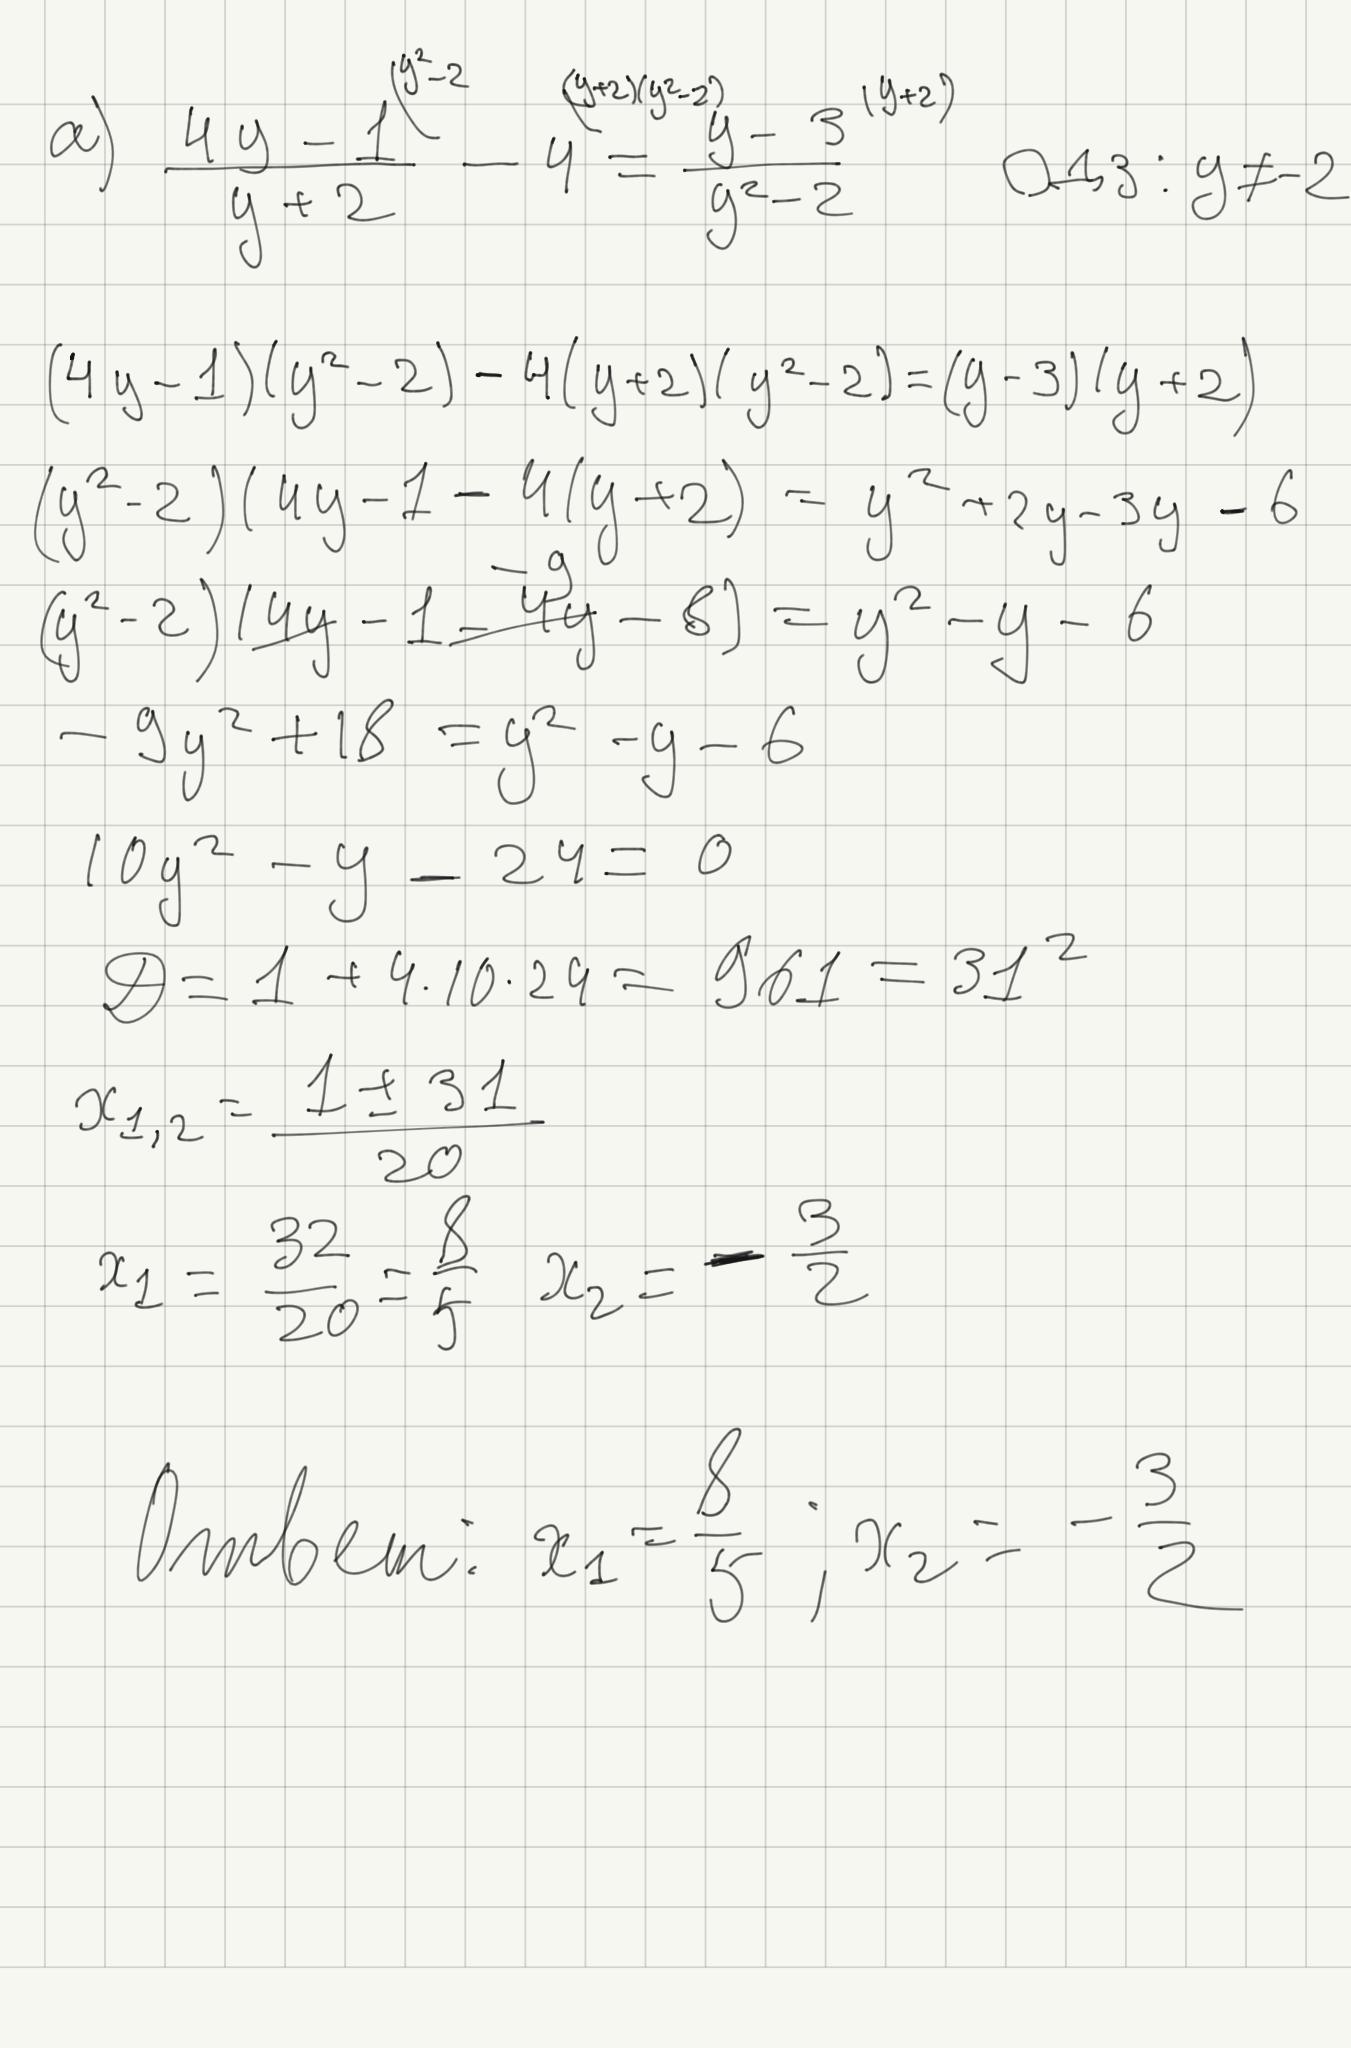 а) (4y - 1)/(y + 2) (y² - 2 - 4 (y+2)(y²-2) = (y - 3)/(y² - 2) (y+2) ОДЗ: y ≠ -2
(4y - 1)(y² - 2) - 4(y+2)(y² - 2) = (y - 3)(y + 2)
(y² - 2)(4y - 1 - 4(y + 2)) = y² + 2y - 3y - 6
- 9
(y² - 2)(4y - 1 - 4y - 8) = y² - y - 6
- 9y² + 18 = y² - y - 6
10y² - y - 24 = 0
D = 1 + 4·10·24 = 961 = 31²
x₁,₂ = (1 ± 31)/20
x₁ = 32/20 = 8/5 x₂ = - 3/2
Ответ: x₁ = 8/5 ; x₂ = - 3/2